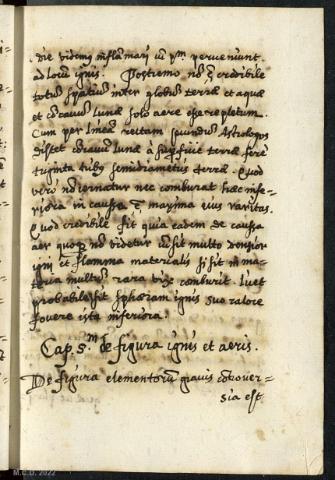 die videmus inflamari cū pm. perveniunt
ad locū ignis. Postremo nō ē credibile
totū spatiū inter globū terrae et aquae
et concavū Lunae solo aere esse repletum.
Cum per lineā rectam secundū Astrologos
distet concavū Lunae à superficie terrae fere
triginta tribus semidiametris terrae. Quod
vero nō cernatur nec comburat haec infe-
riora in causa ē maxima eius raritas.
Quod credibile fit quia eadem de causa
aer quoqᵉ nō videtur cū sit multo densior
igni et flamma materialis si sit in ma-
teria multū rara vix comburit. licet
probabile sit sphaeram ignis suo calore
fovere ista inferiora.
Cap. 5.ᵐ de figura ignis et aeris.
De figura elementorū gravis cōtrover-
sia est
M.C.D. 2022